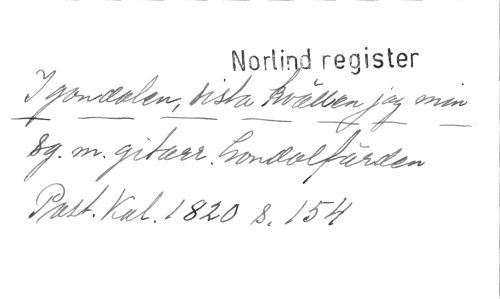 Norlind register
I gondolen, sista kvällen jag min
Sg. m. gitarr. Gondolfärden
Post. Kal. 1820 s. 154